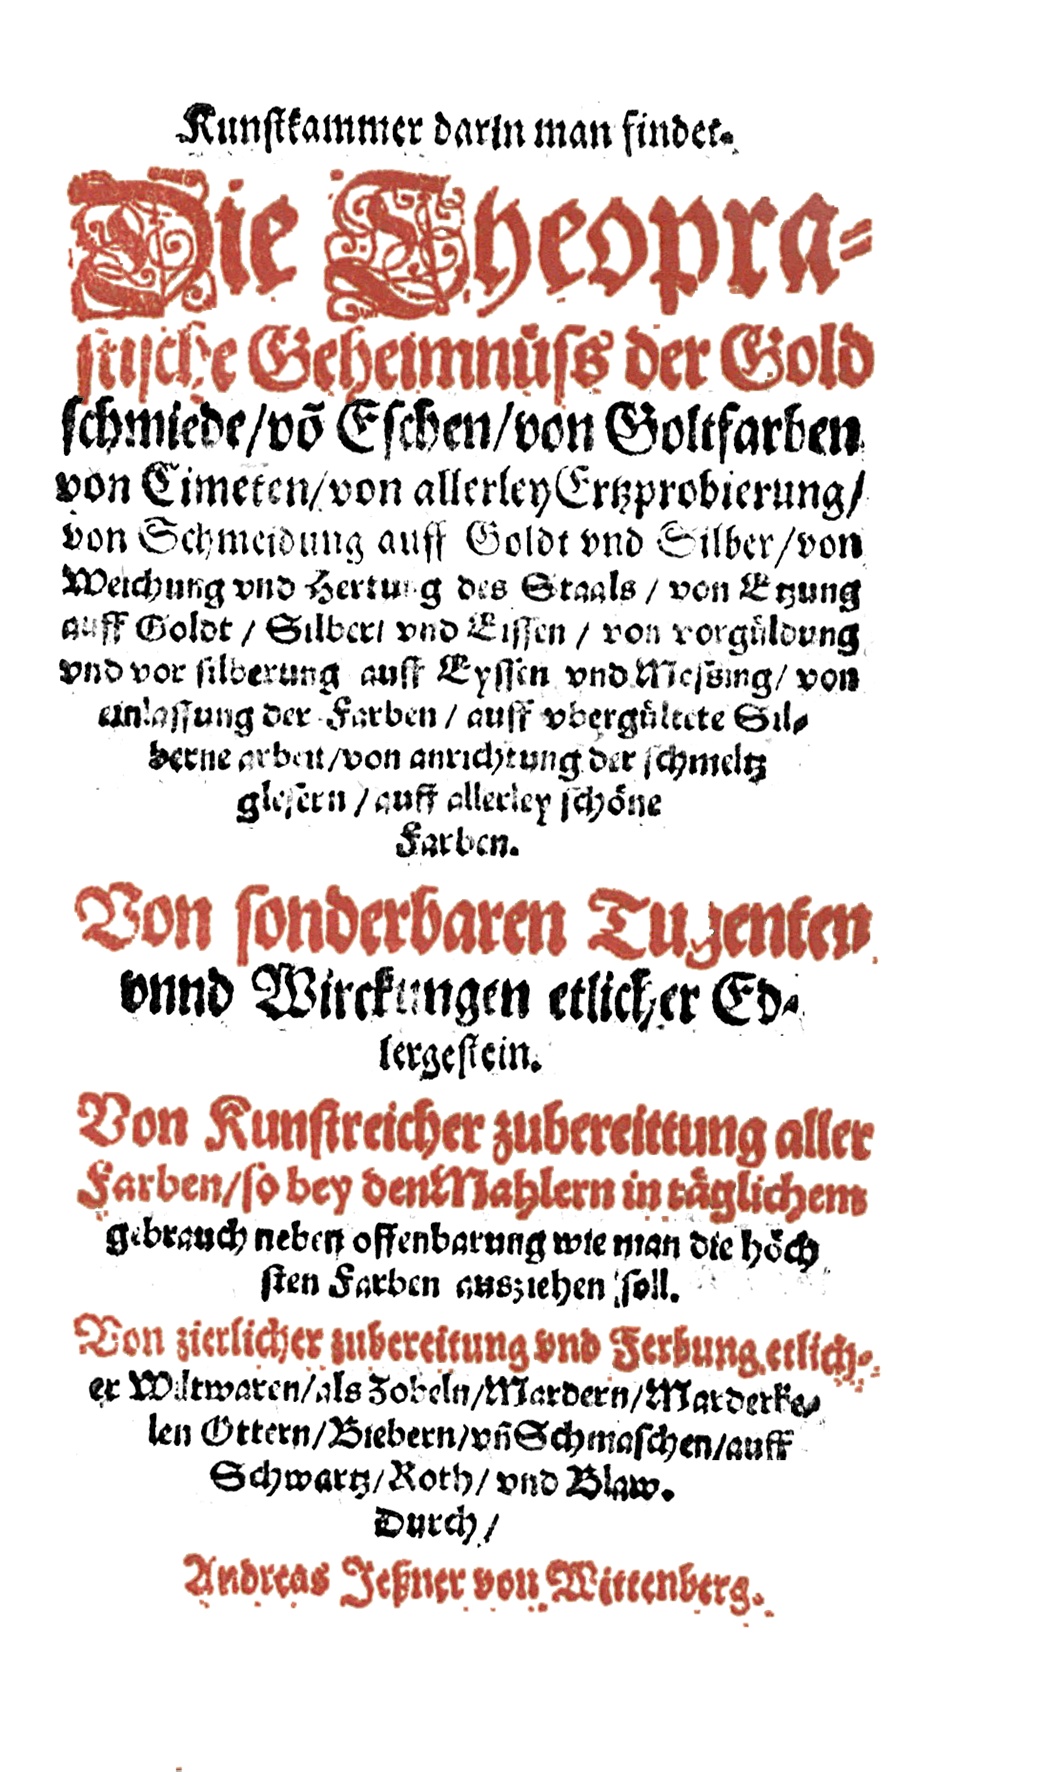 Kunstkammer darin man findet.
Die Theopra-
stische Geheimnüss der Gold
schmiede/võ Eschen/von Goltfarben
von Cimeten/von allerley Ertzprobierung/
von Schmeidung auff Goldt vnd Silber/von
Weichung vnd Hertung des Staals / von Etzung
auff Goldt / Silber/ vnd Eissen / von vorgüldung
vnd vor silberung auff Eyssen vnd Messing/ von
einlassung der Farben / auff vbergültete Sil-
berne arbeit/von anrichtung der schmeltz
glesern / auff allerley schöne
Farben.
Von sonderbaren Tugenten
vnnd Wirckungen etlicher Ed-
lergestein.
Von Kunstreicher zubereittung aller
Farben/so bey den Mahlern in täglichem
gebrauch neben offenbarung wie man die höch
sten Farben ausziehen soll.
Von zierlicher zubereitung vnd Ferbung etlich-
er Wiltwaren/als Zobeln/Mardern/Marderke-
len Ottern/Biebern/vñ Schmaschen/auff
Schwartz/Roth/ vnd Blaw.
Durch/
Andreas Jeßner von Wittenberg.